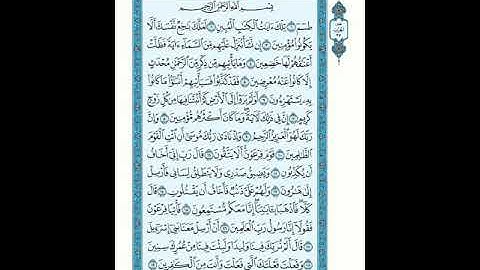 بِسْمِ اللَّهِ الرَّحْمَٰنِ الرَّحِيمِ
طسٓمٓ ۝ تِلْكَ ءَايَٰتُ الْكِتَٰبِ الْمُبِينِ ۝ لَعَلَّكَ بَٰخِعٌ نَّفْسَكَ أَلَّا
يَكُونُوا۟ مُؤْمِنِينَ ۝ إِن نَّشَأْ نُنَزِّلْ عَلَيْهِم مِّنَ السَّمَآءِ ءَايَةً فَظَلَّتْ
أَعْنَٰقُهُمْ لَهَا خَٰضِعِينَ ۝ وَمَا يَأْتِيهِم مِّن ذِكْرٍ مِّنَ الرَّحْمَٰنِ مُحْدَثٍ
إِلَّا كَانُوا۟ عَنْهُ مُعْرِضِينَ ۝ فَقَدْ كَذَّبُوا۟ فَسَيَأْتِيهِمْ أَنۢبَٰٓؤُا۟ مَا كَانُوا۟
بِهِۦ يَسْتَهْزِءُونَ ۝ أَوَلَمْ يَرَوْا۟ إِلَى الْأَرْضِ كَمْ أَنۢبَتْنَا فِيهَا مِن كُلِّ زَوْجٍ
كَرِيمٍ ۝ إِنَّ فِى ذَٰلِكَ لَءَايَةً وَمَا كَانَ أَكْثَرُهُم مُّؤْمِنِينَ ۝ وَإِنَّ
رَبَّكَ لَهُوَ الْعَزِيزُ الرَّحِيمُ ۝ وَإِذْ نَادَىٰ رَبُّكَ مُوسَىٰٓ أَنِ ائْتِ الْقَوْمَ
الظَّٰلِمِينَ ۝ قَوْمَ فِرْعَوْنَ أَلَا يَتَّقُونَ ۝ قَالَ رَبِّ إِنِّىٓ أَخَافُ
أَن يُكَذِّبُونِ ۝ وَيَضِيقُ صَدْرِى وَلَا يَنطَلِقُ لِسَانِى فَأَرْسِلْ
إِلَىٰ هَٰرُونَ ۝ وَلَهُمْ عَلَىَّ ذَنۢبٌ فَأَخَافُ أَن يَقْتُلُونِ ۝ قَالَ
كَلَّا فَاذْهَبَا بِـَٔايَٰتِنَآ إِنَّا مَعَكُم مُّسْتَمِعُونَ ۝ فَأْتِيَا فِرْعَوْنَ
فَقُولَآ إِنَّا رَسُولُ رَبِّ الْعَٰلَمِينَ ۝ أَنْ أَرْسِلْ مَعَنَا بَنِىٓ إِسْرَٰٓءِيلَ
۝ قَالَ أَلَمْ نُرَبِّكَ فِينَا وَلِيدًا وَلَبِثْتَ فِينَا مِنْ عُمُرِكَ سِنِينَ
۝ وَفَعَلْتَ فَعْلَتَكَ الَّتِى فَعَلْتَ وَأَنتَ مِنَ الْكَٰفِرِينَ ۝